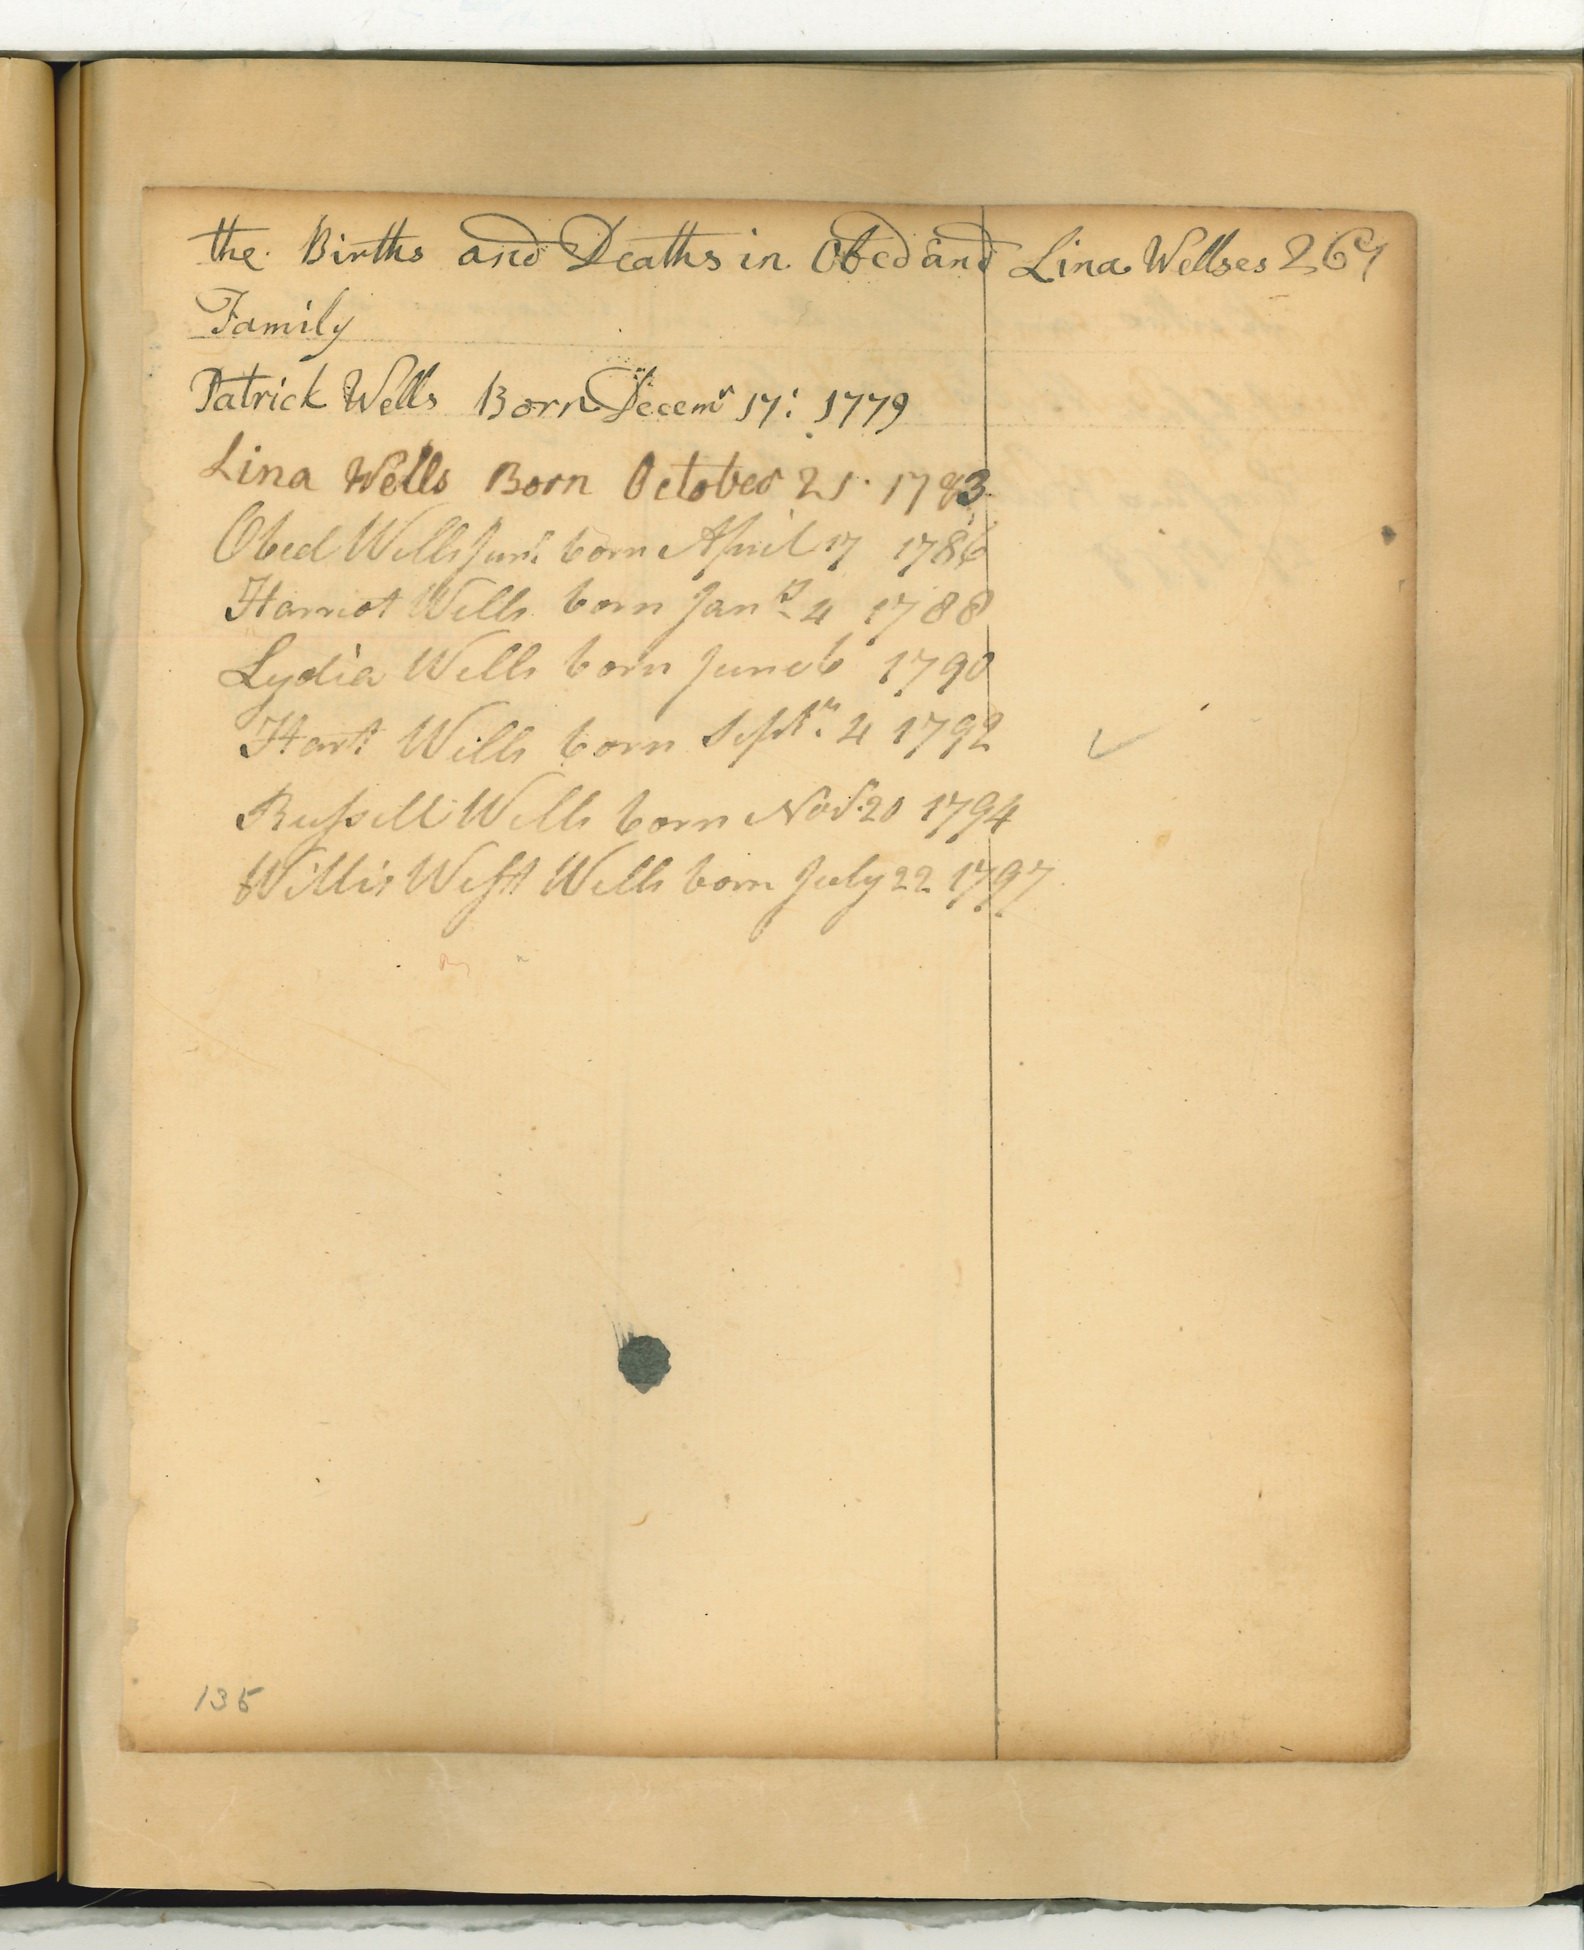 the Births and Deaths in Obed and Lina Wellses 269
Family
Patrick Wells Born Decemr 17: 1779
Lina Wells Born October 21. 1783
Obed Wells Junr. born April 17 1786
Harriot Wells born Jany 4 1788
Lydia Wells born June 6 1790
Hart Wells born Septr. 4 1792
Ruſsell Wells born Novr. 20 1794
Willis Weſt Wells born July 22 1797
135